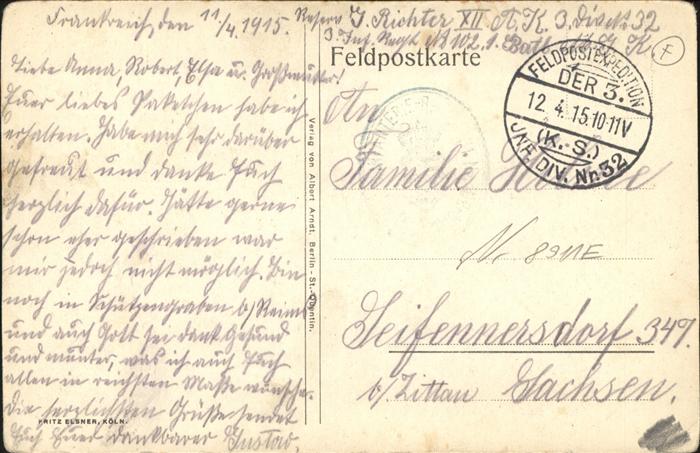 Frankreich, den 11/4. 1915.
Reserv. J. Richter XII A. K. 3. Div. № 32
3. Inf. Regt. № 102. 1. K.
Feldpostkarte
Liebe Anna, Robert, Elsa u. Großmutter!
Euer liebes Paketchen habe ich
erhalten. Habe mich sehr darüber
gefreut und danke Euch
herzlich dafür. Hätte gerne
schon eher geschrieben war
mir jedoch nicht möglich. Bin
noch in Schützengraben b/ Reims
und auch Gott sei dank Gesund
und munter, was ich auch Euch
allen in reichsten Maße wünsche.
Die herzlichsten Grüße sendet
Euch Euer dankbarer Gustav.
FRITZ ELSNER, KÖLN.
Verlag von Albert Arndt, Berlin - St. Quentin.
FELDPOSTEXPEDITION
DER 3.
12. 4. 15. 10-11V
(K. S.)
INF. DIV. Nr. 32
F
An
Familie
Nr. 8911E
Seifennersdorf 347.
b/ Zittau Sachsen.